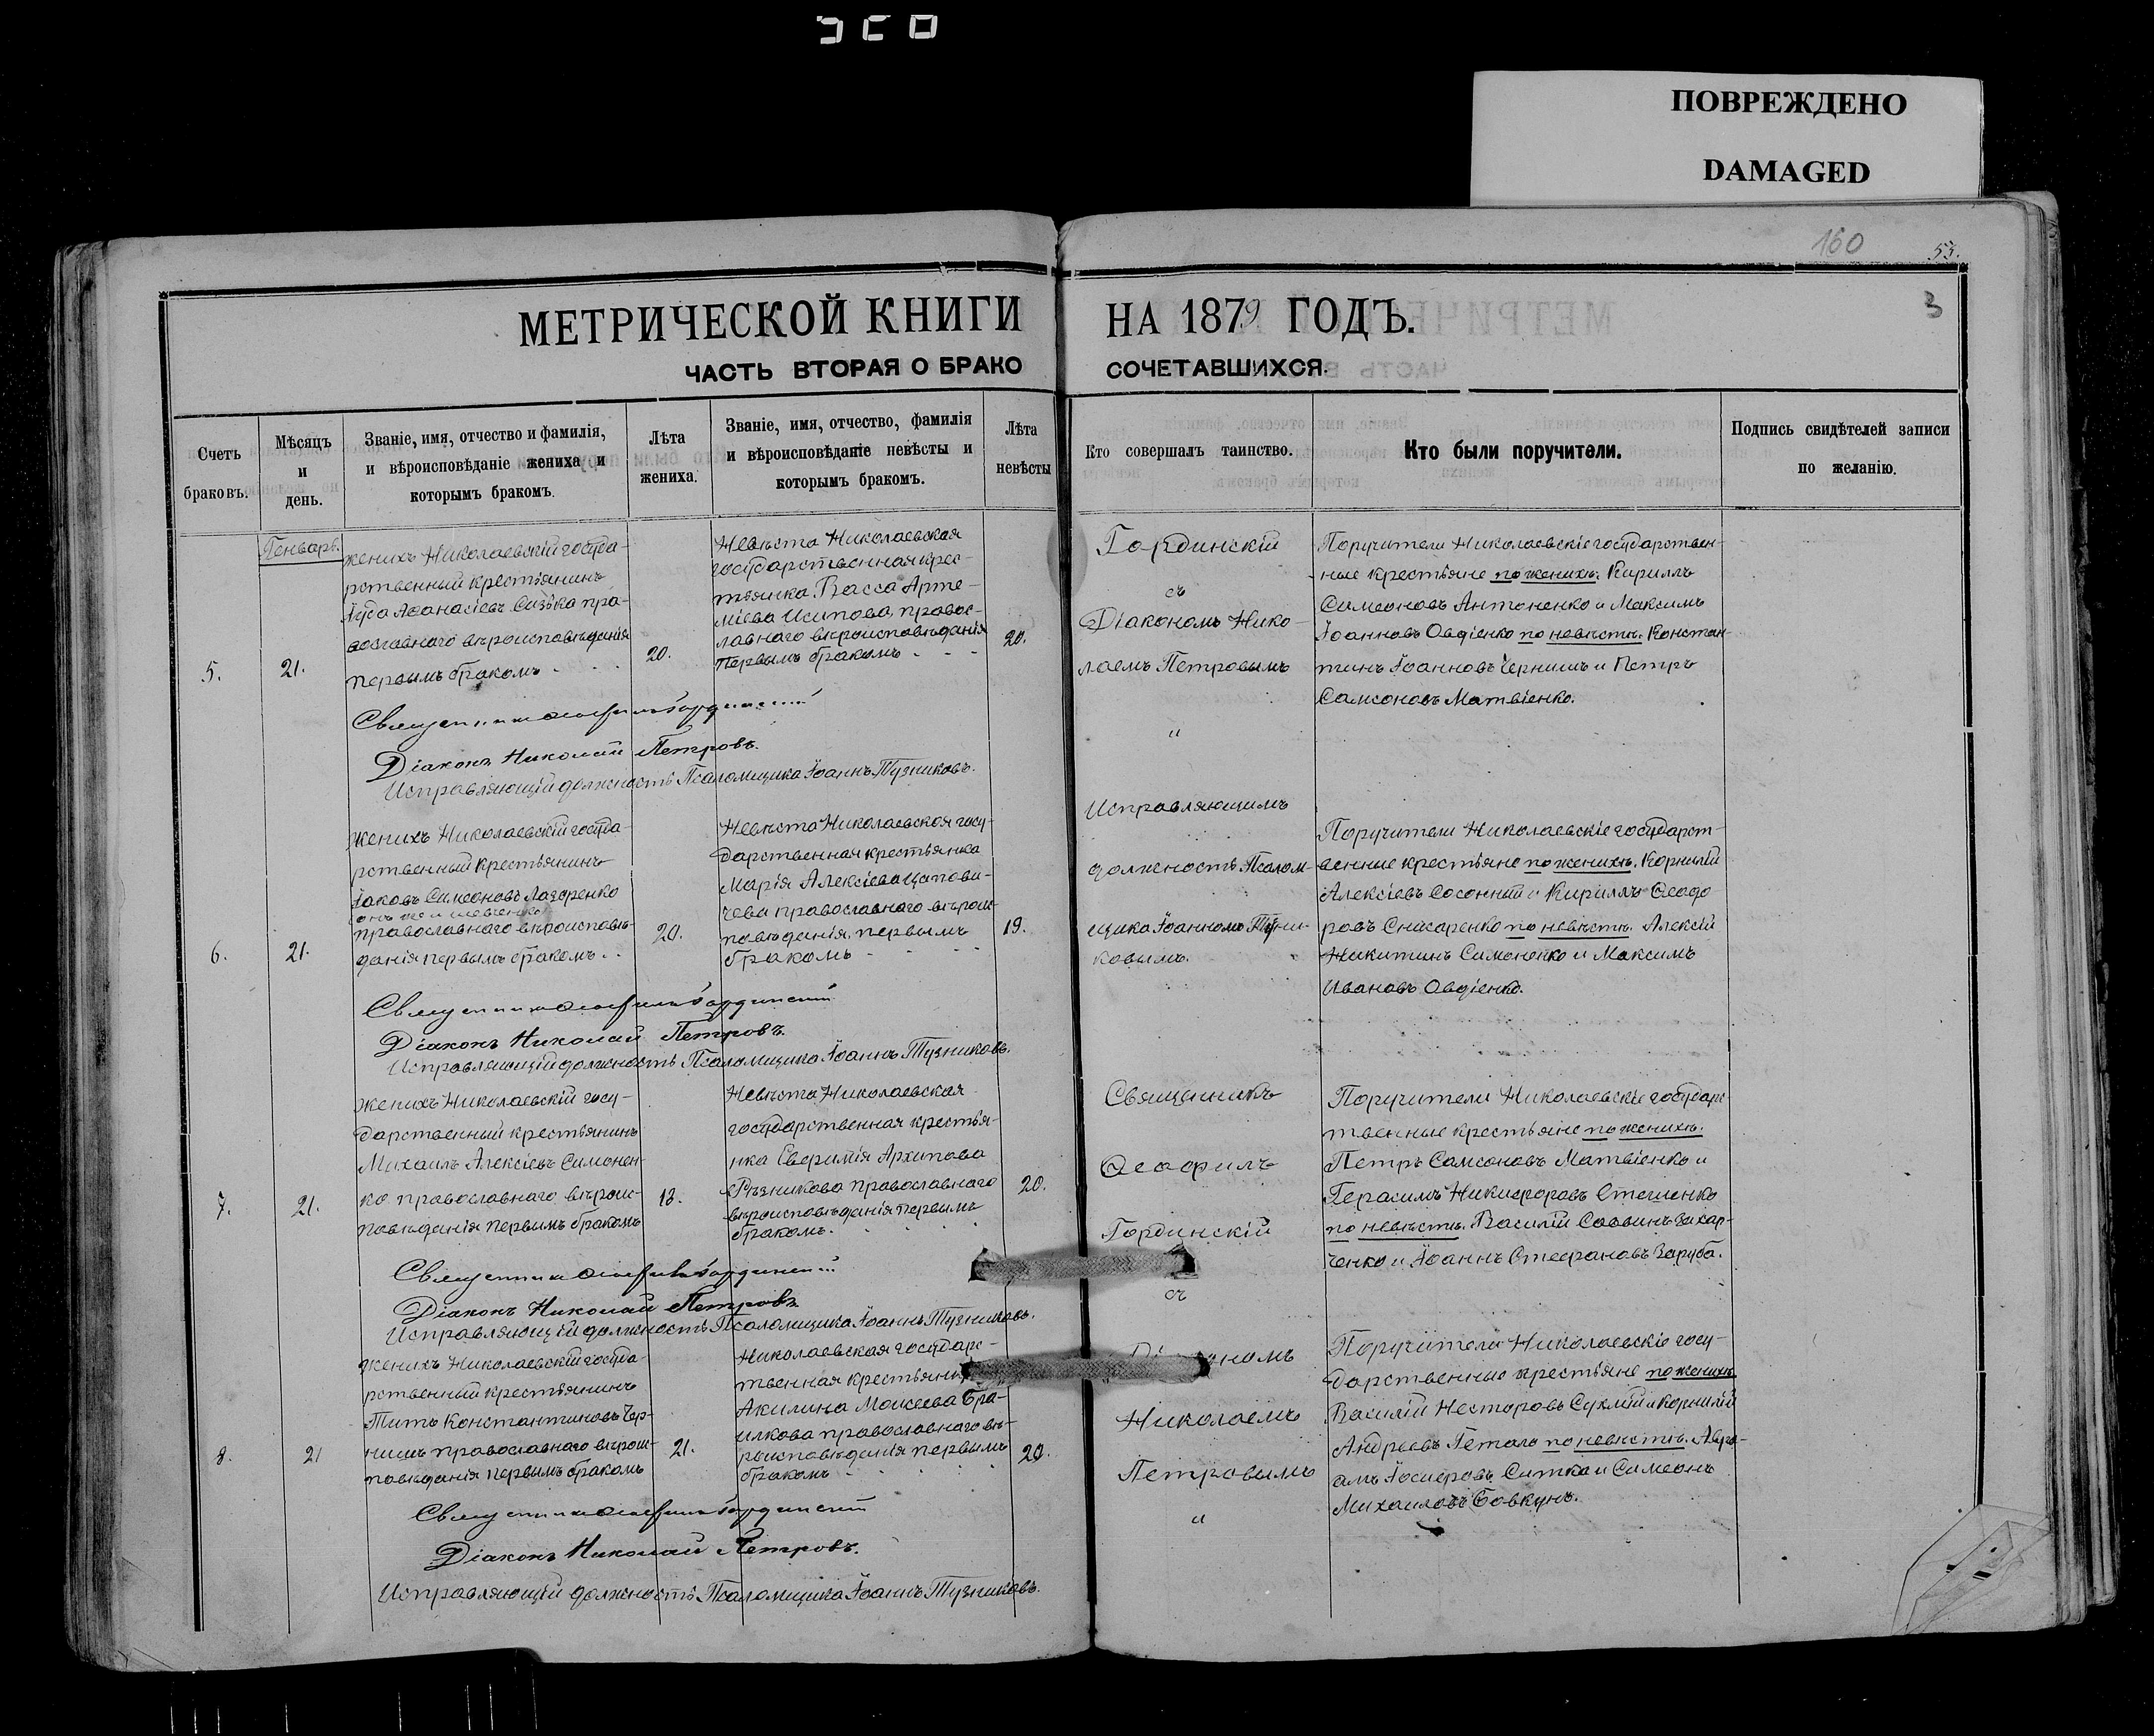 ПОВРЕЖДЕНО
DAMAGED
160
53.
3
МЕТРИЧЕСКОЙ КНИГИ НА 1879 ГОДЪ.
ЧАСТЬ ВТОРАЯ О БРАКО СОЧЕТАВШИХСЯ.
Счетъ браковъ.
Мѣсяцъ и день.
Званіе, имя, отчество и фамилія,
и вѣроисповѣданіе жениха и
которымъ бракомъ.
Лѣта
жениха.
Званіе, имя, отчество, фамилія
и вѣроисповѣданіе невѣсты и
которымъ бракомъ.
Лѣта
невѣсты
Кто совершалъ таинство.
Кто были поручители.
Подпись свидѣтелей записи
по желанію.
Генварь.
5.
21.
женихъ Николаевскій госуда-
рственный крестьянинъ
Іуда Аѳанасіевъ Сизька пра-
вославнаго вѣроисповѣданія
первымъ бракомъ
20.
Невѣста Николаевская
государственная крес-
тьянка Васса Арте-
міева Исипова, правос-
лавнаго вѣроисповѣданія
первымъ бракомъ
20.
Гординскій
съ
Діакономъ Нико-
лаемъ Петровымъ
"
Исправляющимъ
должность Псалом-
щика Іоанномъ Тузни-
ковымъ.
Поручители Николаевскіе государствен-
ные крестьяне по женихѣ. Кириллъ
Симеоновъ Антоненко и Максимъ
Іоанновъ Овдіенко по невѣстѣ. Констан-
тинъ Іоанновъ Чернишъ и Петръ
Самсоновъ Матвіенко.
Діаконъ Николай Петровъ.
Исправляющій должность Псаломщика Іоаннъ Тузниковъ.
6.
21.
женихъ Николаевскій госуда-
рственный крестьянинъ
Іаковъ Симеоновъ Лазаренко
онъ же и Шевченко
православнаго вѣроисповѣ-
данія первымъ бракомъ
20.
Невѣста Николаевская госу-
дарственная крестьянка
Марія Алексіева Цапови-
чева православнаго вѣроис-
повѣданія, первымъ
бракомъ
19.
Поручители Николаевскіе государст-
венные крестьяне по женихѣ. Корнилій
Алексіевъ Сосонный и Кириллъ Ѳеодо
ровъ Снисаренко по невѣстѣ. Алексій
Никитинъ Симоненко и Максимъ
Ивановъ Овдіенко.
Діаконъ Николай Петровъ.
Исправляющій должность Псаломщика Іоаннъ Тузниковъ.
7.
21.
женихъ Николаевскій госу-
дарственный крестьянинъ
Михаилъ Алексіевъ Симонен-
ко православнаго вѣроис-
повѣданія первымъ бракомъ
18.
Невѣста Николаевская
государственная крестья-
нка Евѳимія Архипова
Рѣзникова православнаго
вѣроисповѣданія первымъ
бракомъ.
20.
Священникъ
Ѳеофилъ
Гординскій
съ
Николаемъ
Петровымъ
"
Поручители Николаевскіе государс
твенные крестьяне по женихѣ.
Петръ Самсоновъ Матвіенко и
Герасимъ Никифоровъ Стеценко
по невѣстѣ. Василій Саввинъ Захар-
ченко и Іоаннъ Стефановъ Заруба.
Діаконъ Николай Петровъ
Исправляющій должность Псаломщика Іоаннъ Тузниковъ.
8.
21
женихъ Николаевскій госуда
рственный крестьянинъ
Титъ Константиновъ Чер-
нишъ православнаго вѣроис-
повѣданія первымъ бракомъ
21.
Николаевская государс-
твенная крестьянка
Акилина Моисеева Бра-
илкова православнаго вѣ-
роисповѣданія первымъ
бракомъ
20.
Поручители Николаевскіе госу-
дарственные крестьяне по женихѣ
Василій Несторовъ Сухлій и Корнилій
Андреевъ Гетало по невѣстѣ. Авра-
амъ Іосифовъ Ситка и Симеонъ
Михаиловъ Бовкунъ.
Діаконъ Николай Петровъ.
Исправляющій должность Псаломщика Іоаннъ Тузниковъ.